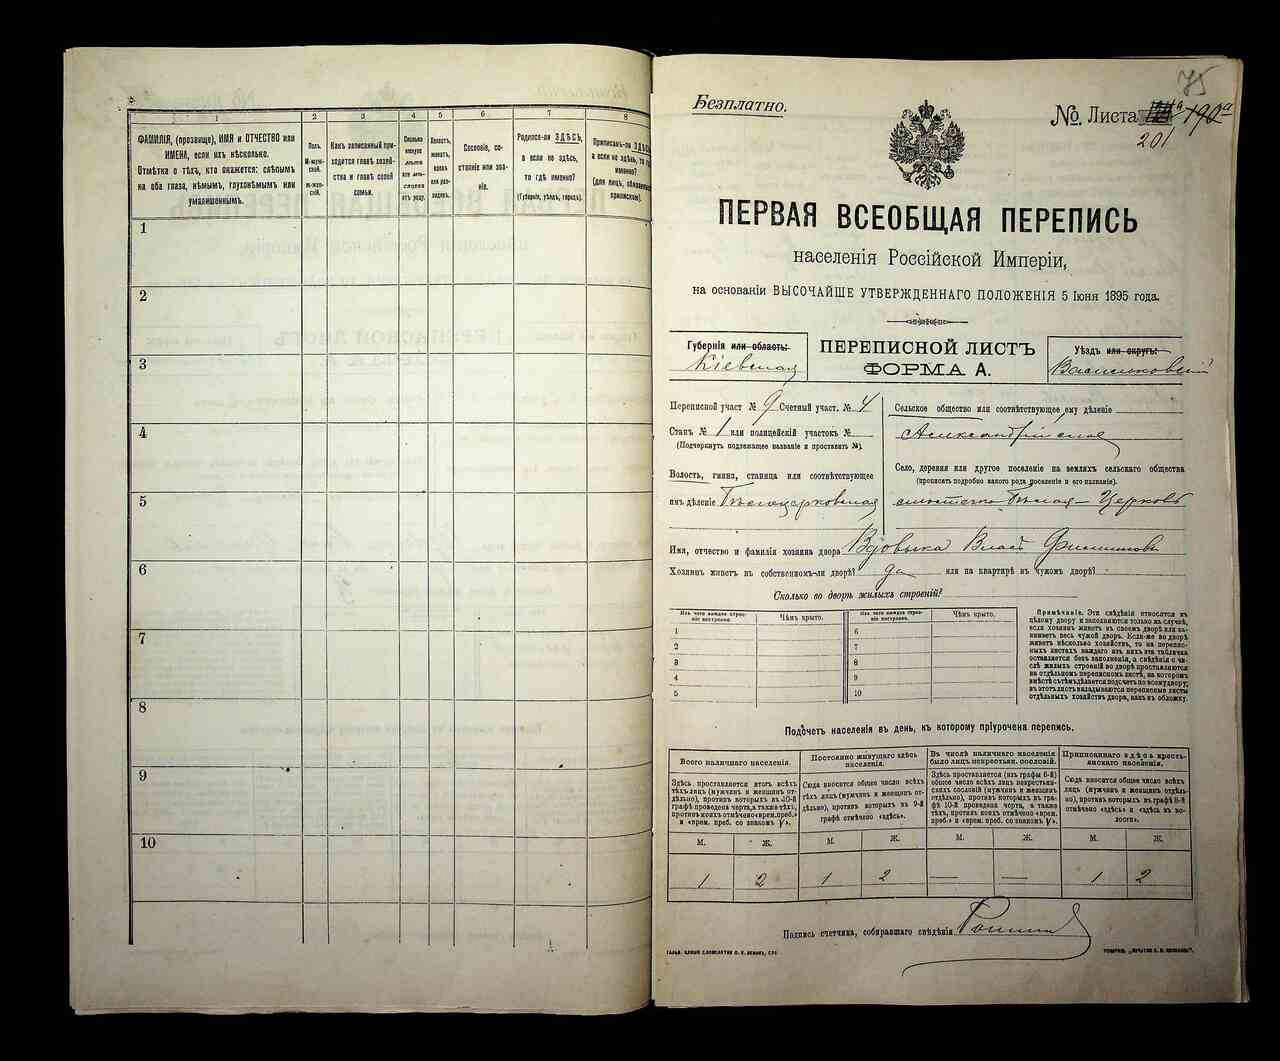 1
2
3
4
5
6
7
8
ФАМИЛІЯ, (прозвище), ИМЯ и ОТЧЕСТВО или
ИМЕНА, если ихъ нѣсколько.
Отмѣтка о тѣхъ, кто окажется: слѣпымъ
на оба глаза, нѣмымъ, глухонѣмымъ или
умалишеннымъ.
Полъ.
М-муж-
ской.
Ж-жен-
скій.
Какъ записанный при-
ходится главѣ хозяй-
ства и главѣ своей
семьи.
Сколько
минуло
лѣтъ
или мѣ-
сяцевъ
отъ роду.
Холостъ,
женатъ,
вдовъ
или раз-
веденъ.
Сословіе, со-
стояніе или зва-
ніе.
Родился-ли ЗДѢСЬ,
а если не здѣсь,
то гдѣ именно?
(Губернія, уѣздъ, городъ).
Приписанъ-ли ЗДѢСЬ,
а если не здѣсь, то гдѣ
именно?
(для лицъ, обязанныхъ
припискою).
1
2
3
4
5
6
7
8
9
10
75
Безплатно.
№ Листа 190а
201
ПЕРВАЯ ВСЕОБЩАЯ ПЕРЕПИСЬ
населенія Россійской Имперіи,
на основаніи ВЫСОЧАЙШЕ УТВЕРЖДЕННАГО ПОЛОЖЕНІЯ 5 Іюня 1895 года.
Губернія или область:
Кіевская
ПЕРЕПИСНОЙ ЛИСТЪ
ФОРМА А.
Уѣздъ или округъ:
Васильковскій
Переписной участ № 9 Счетный участ. № 4
Станъ № 1 или полицейскій участокъ №
(Подчеркнуть подлежащее названіе и проставить №).
Волость, гмина, станица или соотвѣтствующее
имъ дѣленіе Бѣлоцерковская
Сельское общество или соотвѣтствующее ему дѣленіе
Александрійское
Село, деревня или другое поселеніе на земляхъ сельскаго общества
(прописать подробно какого рода поселеніе и его названіе).
мѣстечко Бѣлая-Церковь
Имя, отчество и фамилія хозяина двора Вдовыка Власъ Филиповъ
Хозяинъ живетъ въ собственномъ-ли дворѣ? да или на квартирѣ въ чужомъ дворѣ?
Сколько во дворѣ жилыхъ строеній?
Изъ чего каждое строе-
ніе построено.
Чѣмъ крыто.
Изъ чего каждое строе-
ніе построено.
Чѣмъ крыто.
1
2
3
4
5
6
7
8
9
10
Примѣчаніе. Эти свѣдѣнія относятся къ
цѣлому двору и заполняются только въ случаѣ,
если хозяинъ живетъ въ своемъ дворѣ или за-
нимаетъ весь чужой дворъ. Если-же во дворѣ
живетъ нѣсколько хозяйствъ, то на перепис-
ныхъ листахъ каждаго изъ нихъ эта табличка
оставляется безъ заполненія, а свѣдѣнія о чи-
слѣ жилыхъ строеній во дворѣ проставляются
на отдѣльномъ переписномъ листѣ, на которомъ
вмѣстѣ съ тѣмъ дѣлается подсчетъ по всему двору;
въ этотъ листъ вкладываются переписные листы
отдѣльныхъ хозяйствъ двора, какъ въ обложку.
Подсчетъ населенія въ день, къ которому пріурочена перепись.
Всего наличнаго населенія.
Постоянно живущаго здѣсь
населенія.
Въ числѣ наличнаго населенія
было лицъ некрестьян. сословій.
Приписаннаго здѣсь кресть-
янскаго населенія.
Здѣсь проставляется итогъ всѣхъ
тѣхъ лицъ (мужчинъ и женщинъ от-
дѣльно), противъ которыхъ въ 10-й
графѣ проведена черта, а также тѣхъ,
противъ коихъ отмѣчено «врем. преб.»
и «врем. преб. со знакомъ V».
Сюда вносится общее число всѣхъ
тѣхъ лицъ (мужчинъ и женщинъ от-
дѣльно), противъ которыхъ въ 9-й
графѣ отмѣчено «здѣсь».
Здѣсь проставляется (изъ графы 6-й)
общее число всѣхъ лицъ некрестьян-
скихъ сословій (мужчинъ и женщинъ
отдѣльно), противъ которыхъ въ гра-
фѣ 10-й проведена черта, а также
тѣхъ, противъ коихъ отмѣчено «врем.
преб.» и «врем. преб. со знакомъ V».
Сюда вносится общее число всѣхъ
лицъ (мужчинъ и женщинъ отдѣль-
но), противъ которыхъ въ графѣ 8-й
отмѣчено «здѣсь» и «здѣсь въ во-
лости».
М.
Ж.
М.
Ж.
М.
Ж.
М.
Ж.
1
2
1
2
—
—
1
2
Подпись счетчика, собиравшаго свѣдѣнія